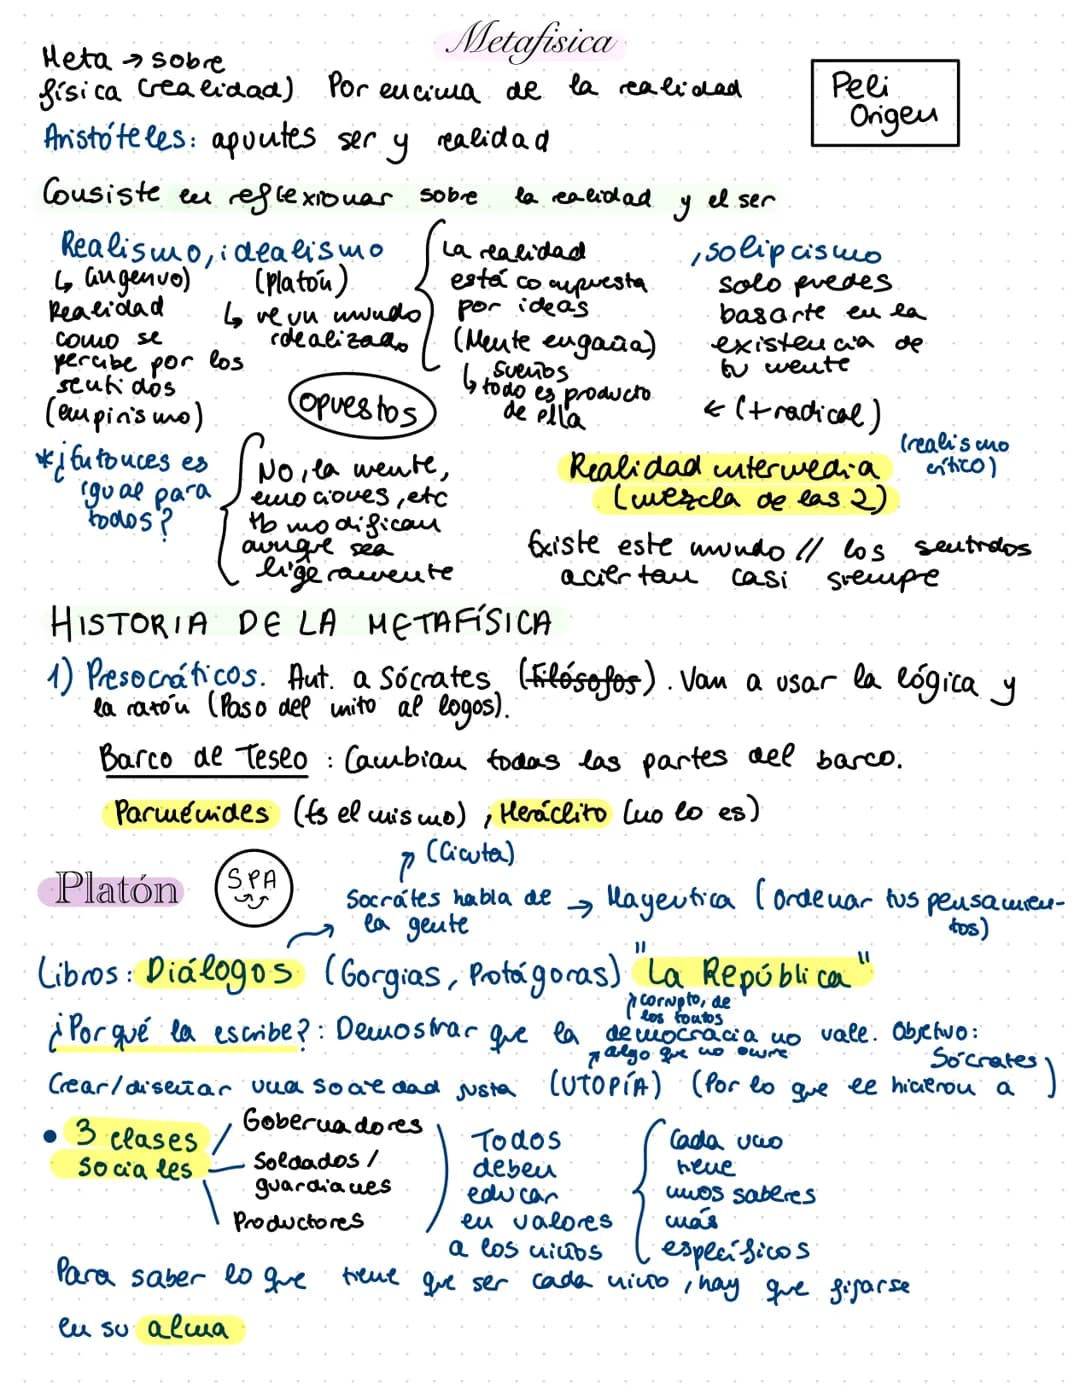 Metafísica
Meta → sobre
física (realidad) Por encima de la realidad
Peli
Origen
Aristóteles: apuntes ser y realidad
Consiste en reflexionar sobre la realidad y el ser
Realismo, idealismo
↳ (ingenuo)
Realidad
como se
percibe por los
sentidos
(empirismo)
(Platón)
↳ ve un mundo
idealizado
La realidad
está compuesta
por ideas
(Mente engaña)
↳ Sueños
todo es producto
de ella
, solipcismo
solo puedes
basarte en la
existencia de
tu mente
← (+radical)
opuestos
*¿Entonces es
igual para
todos?
No, la mente,
emociones, etc
tb modifican
aunque sea
ligeramente
Realidad intermedia
(mezcla de las 2)
(realismo
crítico)
Existe este mundo // los sentidos
aciertan casi siempre
HISTORIA DE LA METAFÍSICA
1) Presocráticos. Ant. a Sócrates (Filósofos). Van a usar la lógica y
la razón (Paso del mito al logos).
Barco de Teseo : Cambian todas las partes del barco.
Parménides (Es el mismo) ; Heráclito (no lo es)
Platón
SPA
(Cicuta)
Socrátes habla de
la gente
→ Mayeutica (ordenar tus pensamien-
tos)
Libros: Diálogos (Gorgias, Protágoras) "La República"
corrupto, de
los tontos
¿Por qué la escribe?: Demostrar que la democracia no vale. Objetivo:
algo que no ocurre
Crear/diseñar una sociedad justa (UTOPÍA) (Por lo que le hicieron a Sócrates)
• 3 clases
sociales
Gobernadores
Soldados /
guardianes
Productores
Todos
deben
educar
en valores
a los niños
Cada uno
tiene
unos saberes
más
específicos
Para saber lo que tiene que ser cada niño, hay que fijarse
en su alma